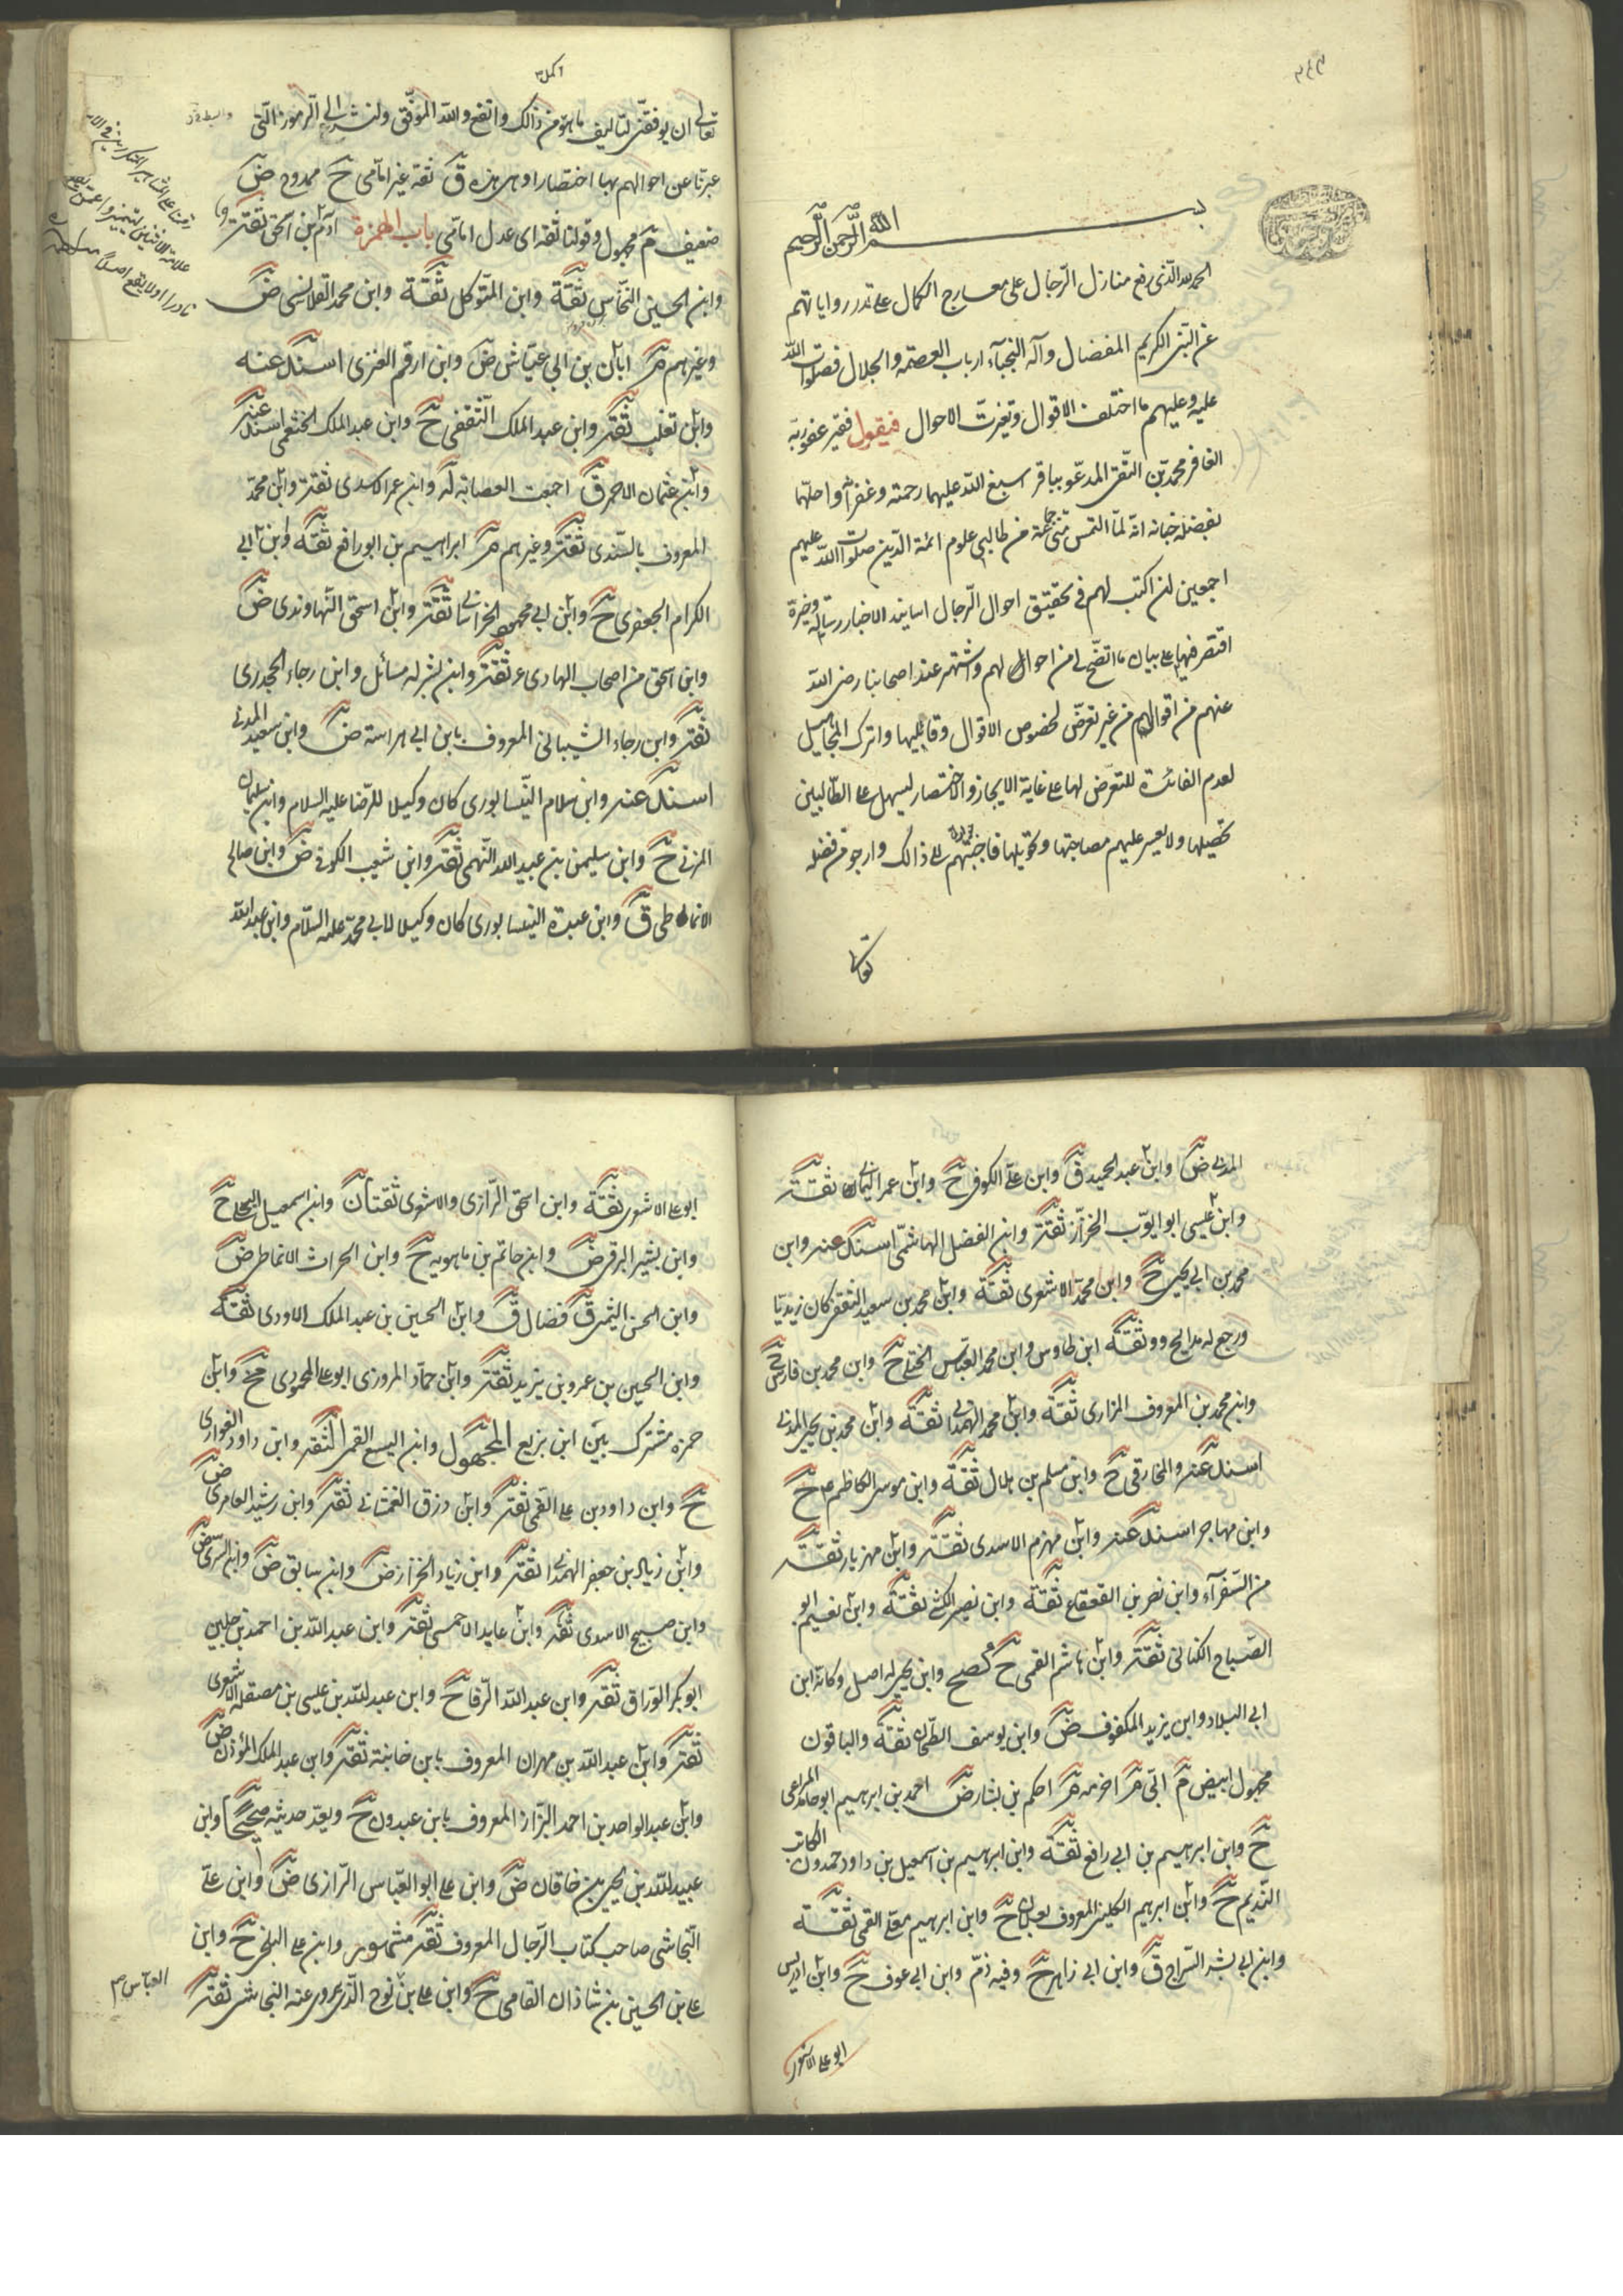 بسم الله الرحمن الرحيم
الحمد لله الذى رفع منازل الرجال على معارج الكمال على قدر رواياتهم
عن النبى الكريم المفضال وآله النجباء ارباب العصمة والجلال فصلوات الله
عليه وعليهم ما اختلف الاقوال وتغيرت الاحوال فيقول فقير عفو ربه
الغافر محمد بن التقى المدعو بباقر اسبغ الله عليهما رحمته وغفرانه واحلهما
بفضله جنانه انه لما التمس منى جماعة من طالبى علوم ائمة الدين صلوات الله عليهم
اجمعين ان اكتب لهم فى تحقيق احوال الرجال اسانيد الاخبار رسالة وجيزة
اقتصر فيها على بيان ما اتضح لى من احوالهم واشتهر عند اصحابنا رضى الله
عنهم من اقوالهم من غير تعرض لخصوص الاقوال وقائليها واترك المجاهيل
لعدم الفائدة للتعرض لها على غاية الايجاز والاختصار ليسهل على الطالبين
تحصيلها ولا يعسر عليهم مصاحبتها وتحويلها فاجبتهم الى ذالك وارجو من فضله
تعالى
تعالى ان يوفقنى لتاليف ما هو من ذالك واتفع والله الموفق ولنشر الى الرموز التى
عبرنا عن احوالهم بها اختصارا وهى هذه ق ثقة غير امامى ح ممدوح ض
ضعيف م مجهول وقولنا ثقة اى عدل امامى باب الهمزة آدم بن اسحق ثقة
وابن الحسين النخاس ثقة وابن المتوكل ثقة وابن محمد القلانسى ض
وغيرهم م ابان بن ابى عياش ض وابن ارقم العنزى اسند عنه
وابن تغلب ثقة وابن عبد الملك الثقفى ح وابن عبد الملك الخثعمى اسند عنه
وابن عثمان الاحمر ق اجمعت العصابة له وابن عمر الاسدى ثقة وابن محمد
المعروف بالسندى ثقة وغيرهم م ابراهيم بن ابو رافع ثقة وابن ابى
الكرام الجعفرى ح وابن ابى محمود الخراسانى ثقة وابن اسحق النهاوندى ض
وابن اسحق من اصحاب الهادى ع ثقة وابن بشر له مسائل وابن رجاء الجحدرى
ثقة وابن رجاء الشيبانى المعروف بابن ابى هراسة ض وابن سعيد المدنى
اسند عنه وابن سلام النيسابورى كان وكيلا للرضا عليه السلام وابن سليمان
المزنى ح وابن سليمن بن عبيد الله النهمى ثقة وابن شعيب الكوفى ض وابن صالح
الانماطى ق وابن عبدة النيسابورى كان وكيلا لابى محمد عليه السلام وابن عبد الله
المدنى ض وابن عبد الحميد ق وابن على الكوفى ح وابن عمر اليمانى ثقة
وابن عيسى ابو ايوب الخزاز ثقة وابن الفضل الهاشمى اسند عنه وابن
محمد بن ابى يحيى ح وابن محمد الاشعرى ثقة وابن محمد بن سعيد الثقفى كان زيديا
ورجع له مدايح ووثقه ابن طاوس وابن محمد العباس الختلى ح وابن محمد بن فارس ح
وابن محمد بن المعروف المزارى ثقة وابن محمد الهمدانى ثقة وابن محمد بن يحيى المدنى
اسند عنه والمخارقى ح وابن مسلم بن هلال ثقة وابن موسى الكاظم ع ح
وابن مهاجر اسند عنه وابن مهزم الاسدى ثقة وابن مهزيار ثقة
من السفرآء وابن نصر بن القعقاع ثقة وابن نصير الكشى ثقة وابن نعيم ابو
الصباح الكنانى ثقة وابن هاشم القمى ح كصح وابن يحيى له اصل وكانه ابن
ابى البلاد وابن يزيد المكفوف ض وابن يوسف الطحان ثقة والباقون
مجهول ابيض م ابى م اخرمه م احكم بن بشار ض احمد بن ابرهيم ابو حامد المراغى
ح وابن ابرهيم بن ابى رافع ثقة وابن ابرهيم بن اسمعيل بن داود حمدون الكاتب
النديم ح وابن ابرهيم الكلينى المعروف بعلان ح وابن ابرهيم معلى القمى ثقة
وابن ابى بشر السراج ق وابن ابى زاهر ح وفيه ذم وابن ابى عوف ح وابن ادريس
ابو على الاشعرى
ابو على الاشعرى ثقة وابن اسحق الرازى والاشعرى ثقتان وابن اسمعيل البجلى ح
وابن بشير البرقى ض وابن حاتم بن ماهويه ح وابن الحراث الانماطى ض
وابن الحسن الميثمى ق فضال ق وابن الحسين بن عبد الملك الاودى ثقة
وابن الحسين بن عمرو بن يزيد ثقة وابن حماد المروزى ابو على المحمودى ح وابن
حمزة مشترك بين ابن بزيع المجهول وابن اليسع القمى الثقة وابن داود الفوارى
ح وابن داود بن على القمى ثقة وابن رزق الغمشانى ثقة وابن رشيد العامرى ض
وابن زياد بن جعفر الهمدانى ثقة وابن زياد الخزاز ض وابن سابق ض وابن السرى ض
وابن صبيح الاسدى ثقة وابن عايد الاحمسى ثقة وابن عبد الله بن احمد بن جلين
ابو بكر الوراق ثقة وابن عبد الله الرفا ح وابن عبد الله بن عيسى بن مصقلة الاشعرى
ثقة وابن عبد الله بن مهران المعروف بابن خانبة ثقة وابن عبد الملك المؤذن ض
وابن عبد الواحد بن احمد البزاز المعروف بابن عبدون ح ويعد حديثه صحيحا وابن
عبيد الله بن يحيى بن خاقان ض وابن على ابو العباس الرازى ض وابن على
النجاشى صاحب كتاب الرجال المعروف ثقة مشهور وابن على البلخى ح وابن
على بن الحسين بن شاذان القامى ح وابن على بن نوح الذى روى عنه النجاشى ثقة
العباس